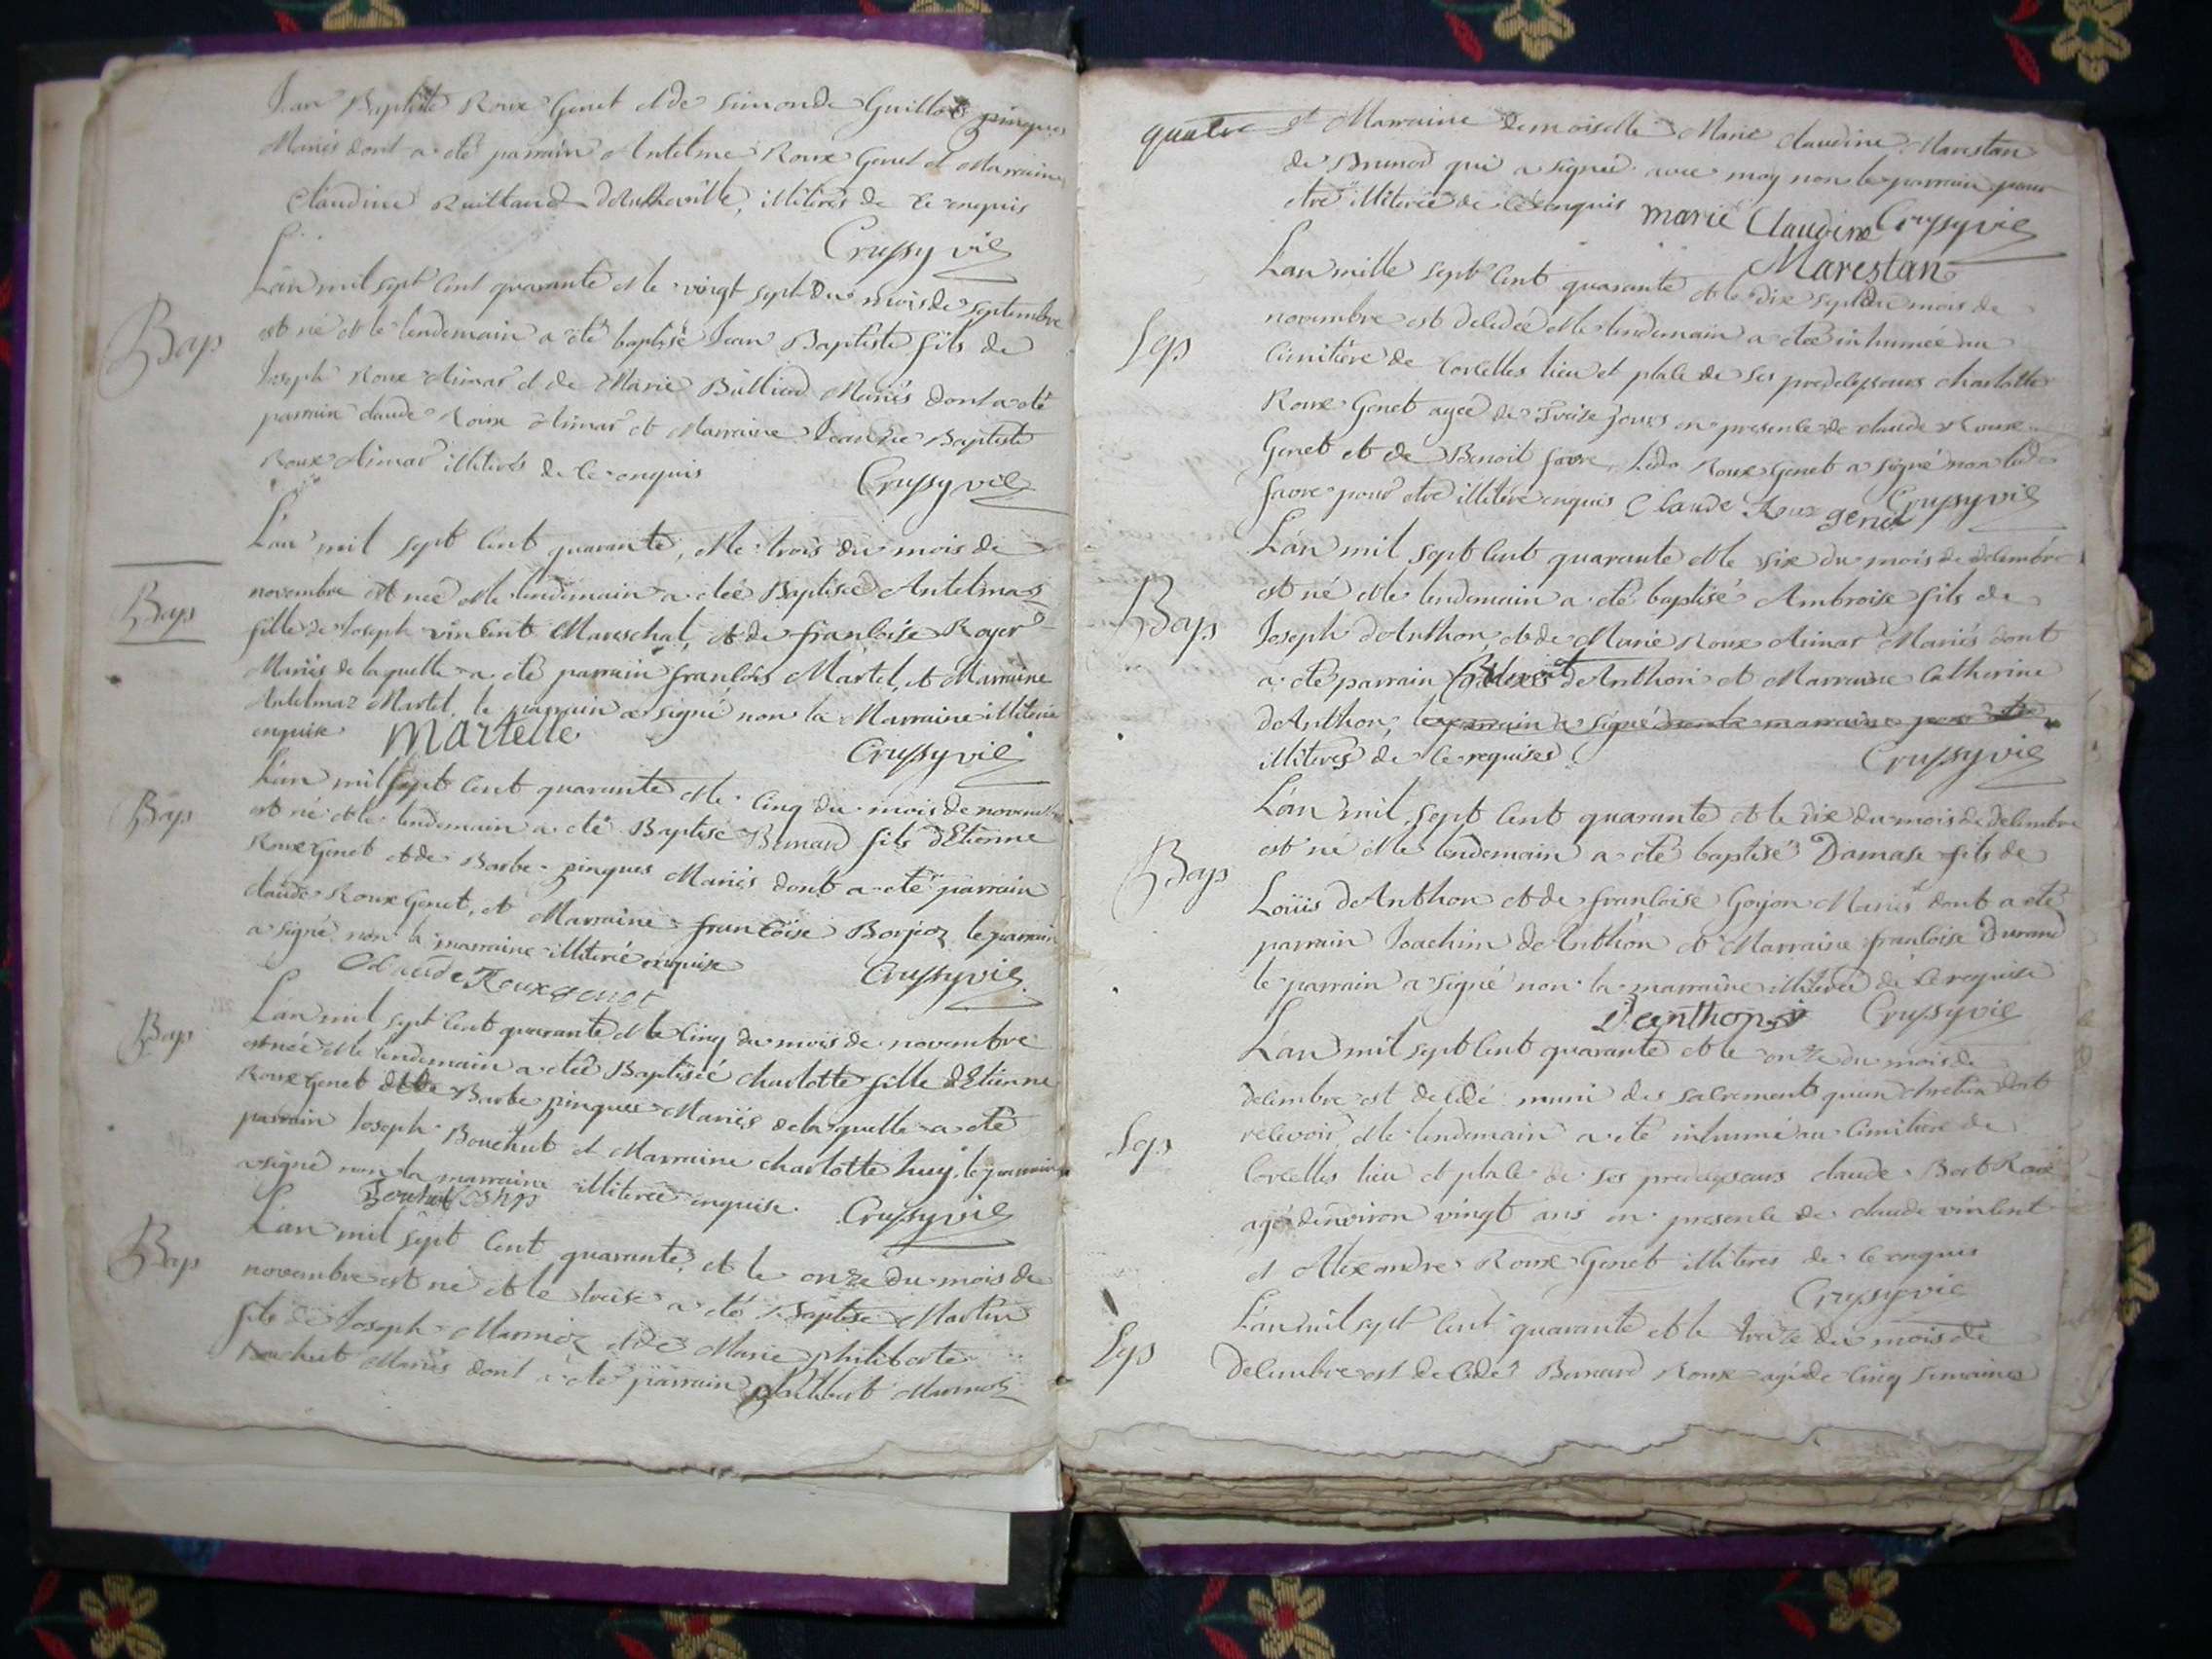 Jean Baptiste Roux Genet et de Simonde Guillot pinques
Mariés dont a été parrain Antelme Roux Genet et Marraine
Claudine illiterés de ce enquis
Crussy vic
Bap
L'an mil sept cent quarante et le vingt sept du mois de septembre
est né et le lendemain a été baptisé Jean Baptiste fils de
Joseph Roux Aimar et de Marie Billiod Mariés dont a été
parrain claude Roux Aimar et Marraine Baptiste
Roux Aimar illiterés de ce enquis
Crussy vic
Bap
L'an mil sept cent quarante, et le trois du mois de
novembre est née et le lendemain a été Baptisée Antelmaz
fille de Joseph vincent Mareschal, et de françoise Royer
Mariés de laquelle a été parrain françois Martel, et Marraine
Antelmaz Martel, le parrain a signé non la Marraine illiterée
enquise Martelle
Crussy vic
Bap
L'an mil sept cent quarante et le cinq du mois de novembre
est né et le lendemain a été Baptisé Bernard fils d'Etienne
Roux Genet et de Barbe pinques Mariés dont a été parrain
claude Roux Genet, et Marraine françoise Borjoz le parrain
a signé non la marraine illiterée enquise
Crussy vic
Claude Roux genet
Bap
L'an mil sept cent quarante et le cinq du mois de novembre
est née et le lendemain a été Baptisée charlotte fille d'Etienne
Roux Genet et de Barbe pinques Mariés de laquelle a été
parrain Joseph Bouchut et Marraine charlotte huy, le parrain
a signé non la marraine illiterée enquise. Crussy vic
Bouchut
Bap
L'an mil sept cent quarante, et le onze du mois de
novembre est né et le treise a été Baptisé Martin
fils de Joseph Marmoz et de Marie philiberte
Bouchut Mariés dont a été parrain philibert Marmoz
quatre
et Marraine Demoiselle Marie claudine Marestan
de Brunod qui a signée avec moy non le parrain pour
etre illiteré de ce enquis marie Claudine Crussy vic
Marestan
Sep
L'an mille sept cent quarante et le dix sept du mois de
novembre est decedée et le lendemain a été inhumée au
cimitière de Corcelles lieu et place de ses predecesseurs charlotte
Roux Genet agée de treise jours en presence de claude Roux
Genet et de Benoit favre, Roux Genet a signé non
favre pour etre illiteré enquis Claude Roux genet Crussy vic
Bap
L'an mil sept cent quarante et le six du mois de decembre
est né et le lendemain a été baptisé Ambroise fils de
Joseph dAnthon, et de Marie Roux Aimar Mariés dont
a été parrain dAnthon et Marraine Catherine
dAnthon, le parrain a signé non la marraine pour etre
illiterés de ce requises
Crussy vic
Bap
L'an mil sept cent quarante et le dix du mois de decembre
est né et le lendemain a été baptisé Damase fils de
Loüis dAnthon et de françoise Goyon Mariés dont a été
parrain Joachim dAnthon et Marraine françoise Durand
le parrain a signé non la marraine illiterée de ce requise
Danthon Crussy vic
Sep
L'an mil sept cent quarante et le onze du mois de
decembre est decedé muni des sacrements qu'un chretien doit
recevoir, et le lendemain a été inhumé au cimitière de
Corcelles lieu et place de ses predecesseurs claude Bert Roux
agé d'environ vingt ans en presence de claude vincent
et Alexandre Roux Genet illiteres de ce enquis
Crussy vic
Sep
L'an mil sept cent quarante et le treize du mois de
Decembre est decedé Bernard Roux agé de cinq semaines